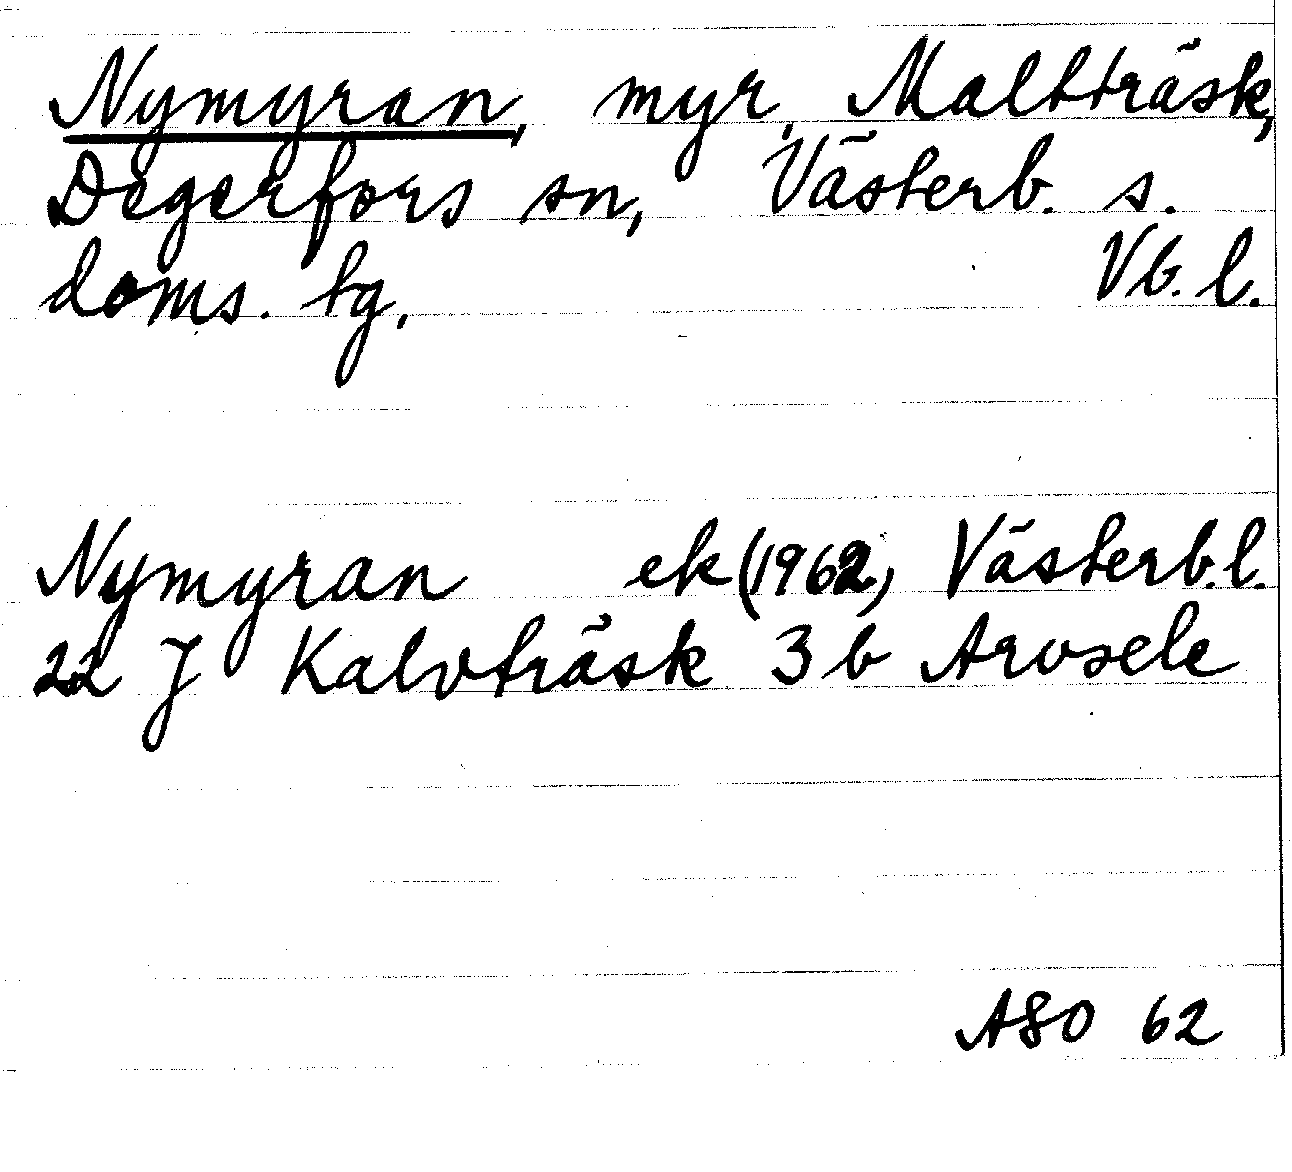 Nymyran, myr, Maltträsk,
Degerfors sn, Västerb. s.
doms. tg. Vb. l.
Nymyran ek (1962), Västerb. l.
22 J Kalvträsk 3 b Arvsele
ASO 62